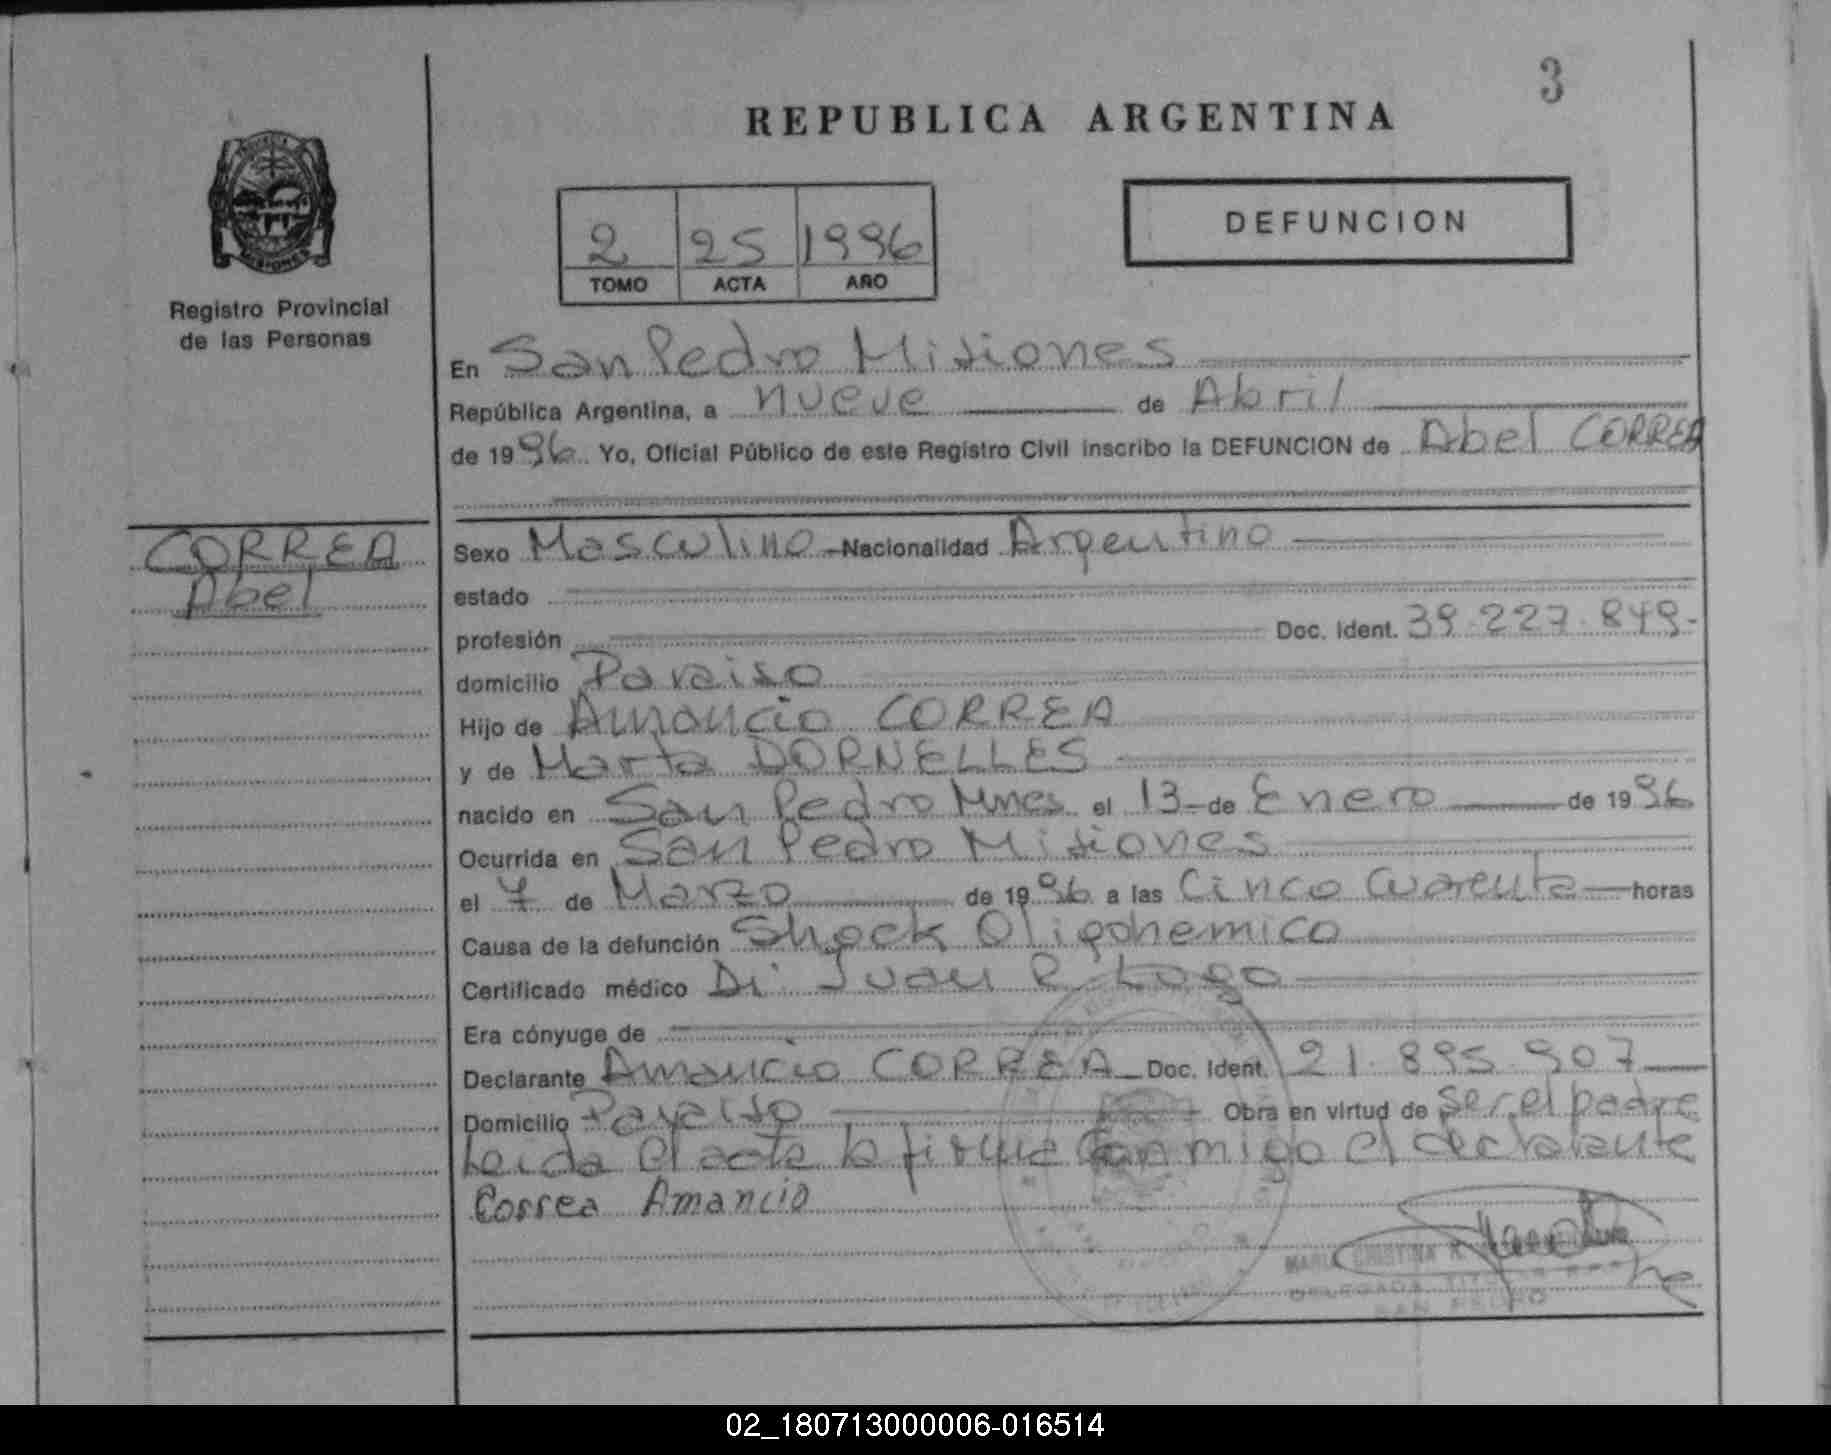 3
REPUBLICA ARGENTINA
MISIONES
Registro Provincial
de las Personas
2 25 1996
TOMO ACTA AÑO
DEFUNCION
En San Pedro Misiones
República Argentina, a nueve de Abril
de 1996 Yo, Oficial Público de este Registro Civil inscribo la DEFUNCION de Abel CORREA
CORREA
Abel
Sexo Masculino Nacionalidad Argentino
estado
profesión Doc. Ident. 39.227.849-
domicilio Paraiso
Hijo de Amancio CORREA
y de Marta DORNELLES
nacido en San Pedro Mnes el 13 de Enero de 1996
Ocurrida en San Pedro Misiones
el 7 de Marzo de 1996 a las Cinco Cuarenta horas
Causa de la defunción Shock Oligohemico
Certificado médico Dr Juan R. Lago
Era cónyuge de
Declarante Amancio CORREA Doc. Ident. 21.895.907
Domicilio Paraiso Obra en virtud de ser el padre
Leida el acta la firma Conmigo el declarante
Correa Amancio
MARIA CRISTINA
DELEGADA TITULAR
SAN PEDRO
02_180713000006-016514